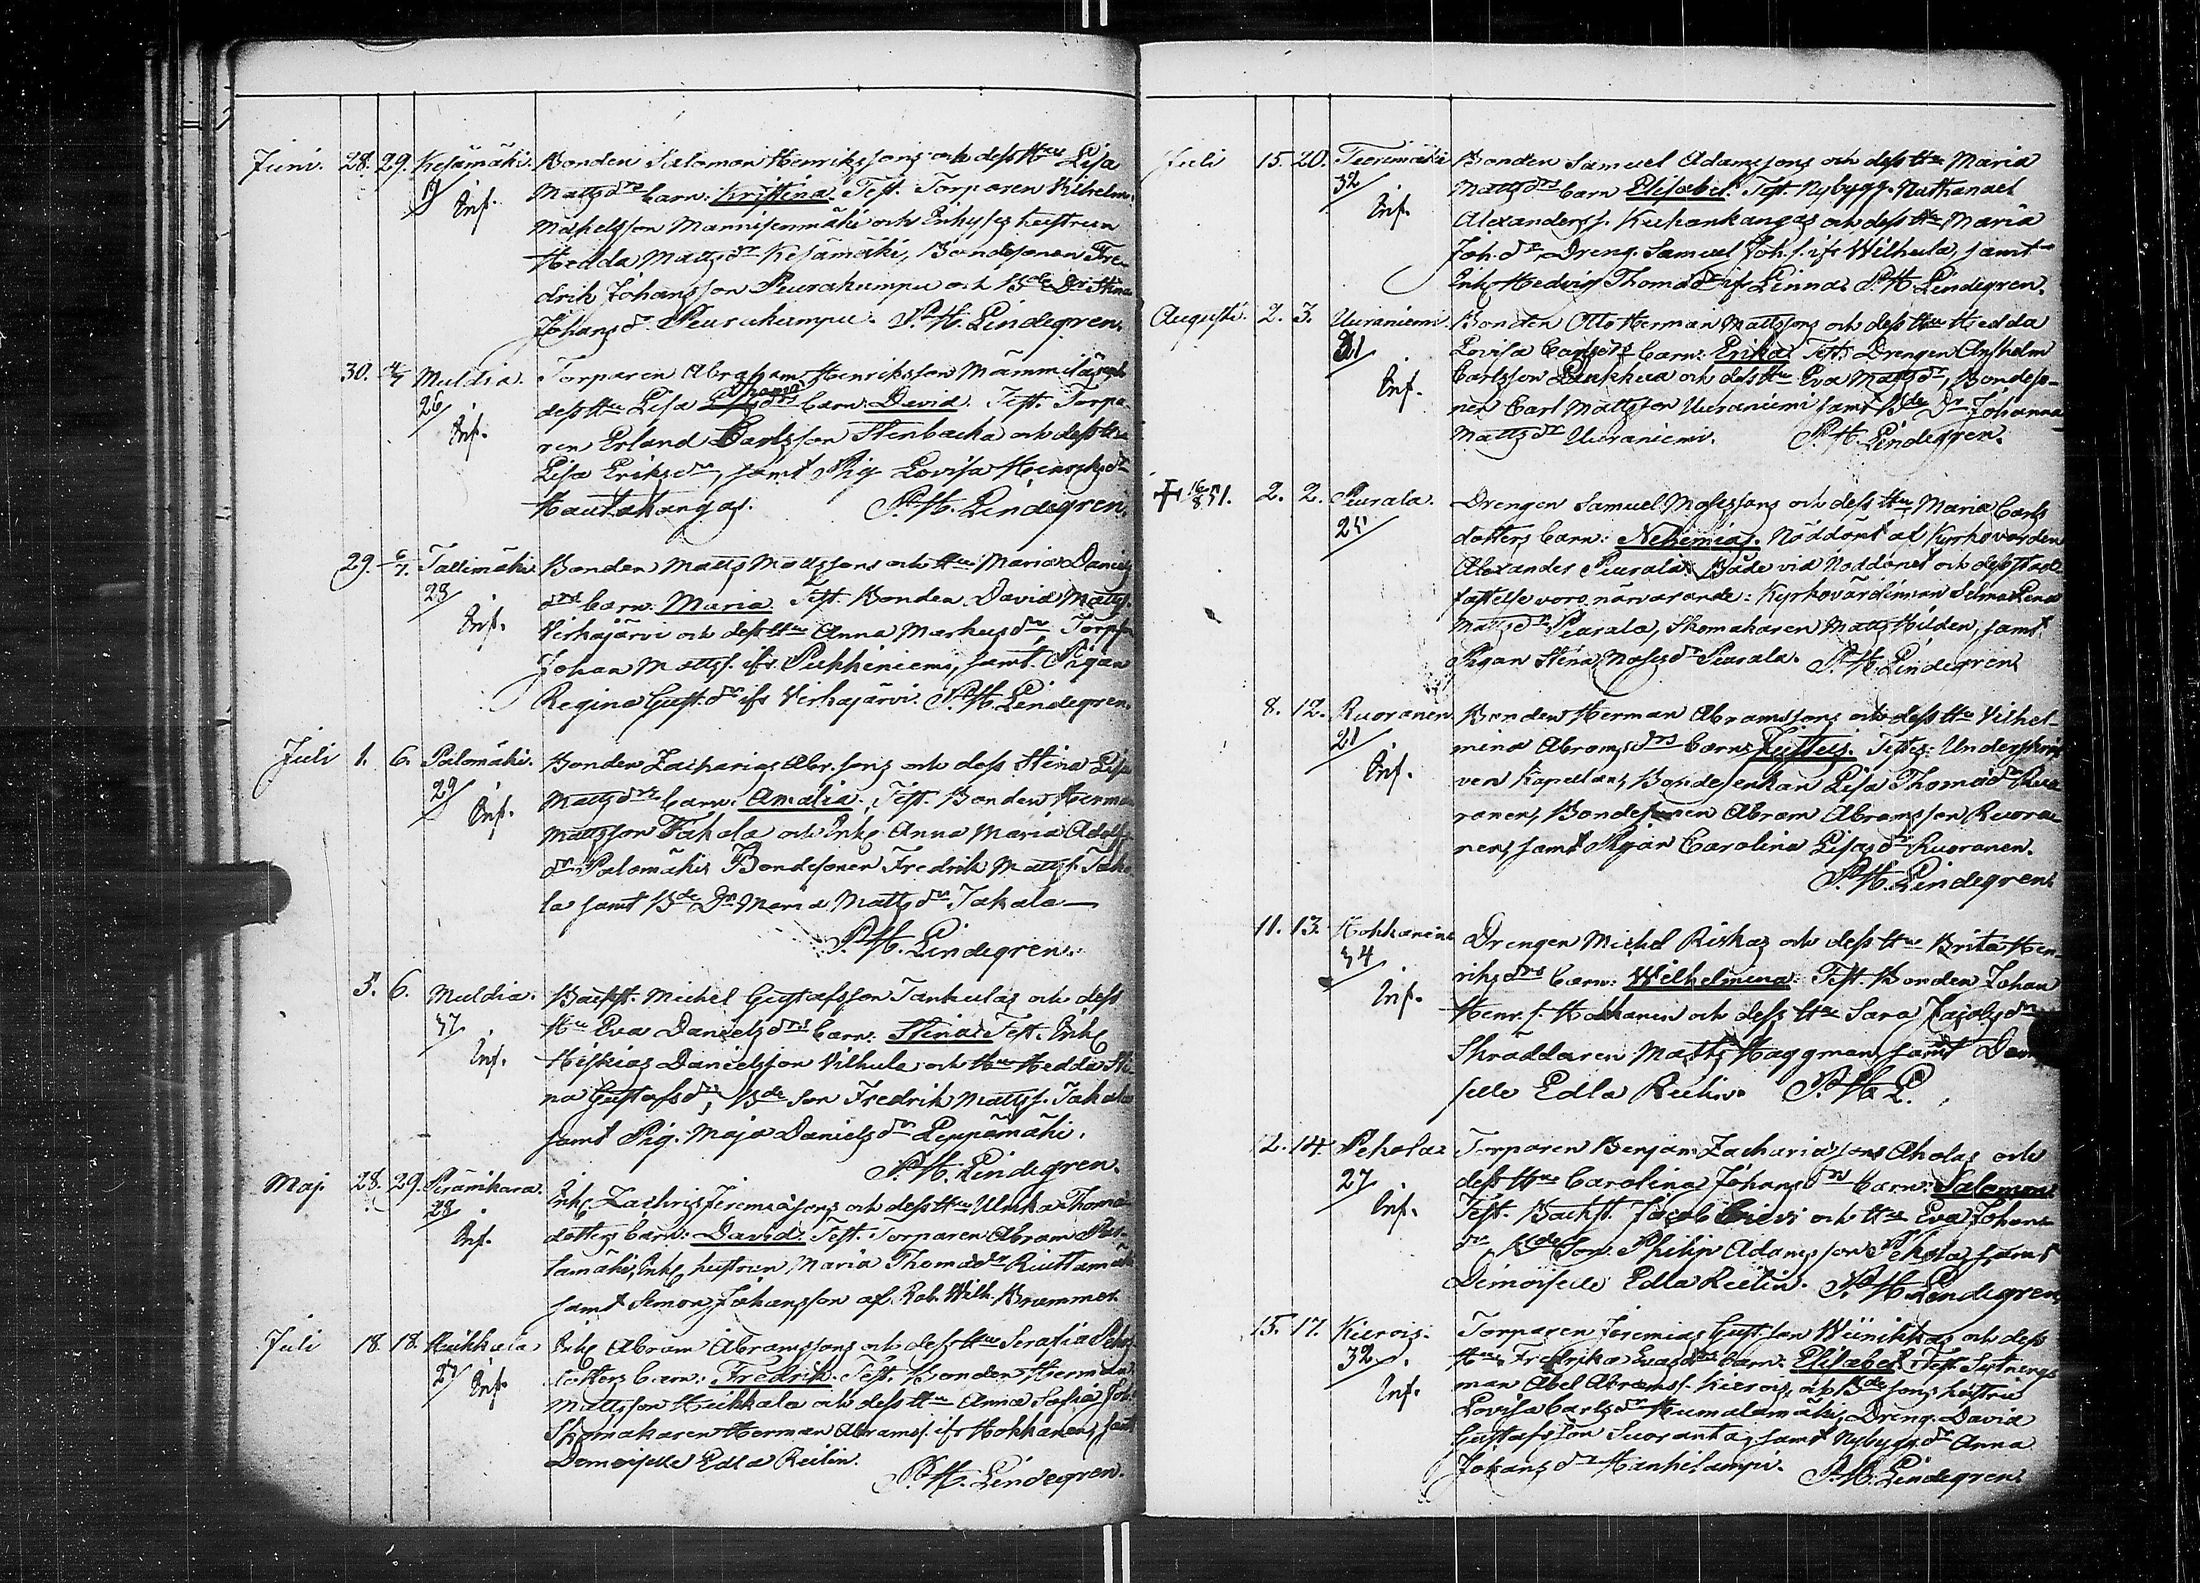 Juni. 28. 29. Kesämäki. Bonden Salomon Henrikssons och dess Hu Lisa
19/ Inf. Matts drs barn: Kristina. Test. Torparen Vilhelm
Mannisenmäki och Inhyses hustrun
Hedda Matts dr Kesämäki, Bondesonen Fre-
drik Johansson Peurakumpu och Bde Dr Stina
Johans dr Peurakumpu. P. H. Lindegren.
30. Multia. Torparen Abraham Henriksson och
26/ Inf. dess Hu Lisa drs barn: David. Test. Torpa-
ren Erland Carlsson Stenbacka och dess Hu
Lisa Eriks dr, samt Pig. Lovisa Henriks dr
Hautakangas. P. H. Lindegren.
29. 6/7. Tallimäki. Bonden Matts Mattssons och Hu Maria Daniels
23/ Inf. drs barn: Maria. Test. Bonden David Matts.
Virhajärvi och dess Hu Anna Markus dr
Johan Matts. ifr. Pukkiniemi, samt Pigan
Regina Gust. dr ifr Virhajärvi. P. H. Lindegren.
Juli 1. 6. Palomäki. Bonden Zacharias Abr. sons och dess Stina Lisa
29/ Inf. Matts drs barn: Amalia. Test. Bonden Herman
Mattsson Takala och Inh. Anna Maria Adolfs
dr Palomäki, Bondesonen Fredrik Matts. Taka-
la samt Bde Dr Maria Matts dr Takala
P. H. Lindegren.
5. 6. Multia. Backst. Michel Gustafsson och dess
37/ Inf. Hu Eva Daniels drs barn: Stina. Test. Inh.
Hiskias Danielsson Vilhula och Hu Hedda Sti-
na Gustafs dr, Bde Son Fredrik Matts. Takala
samt Pig. Maja Daniels dr Leppämäki.
P. H. Lindegren.
Maj. 28. 29. Inh. Zachris Jeremiassons och dess Hu Ulrika Thomas
28/ Inf. dotters barn: David. Test. Torparen Abram
Inh. hustrun Maria Thomas dr
samt Simon Johansson af Rob. Wilh. Brummer.
Juli 18. 18. Heikkala Inh. Abram Abramssons och dess Hu Serafia
27/ Inf. dotters barn: Fredrik. Test. Bonden Herman
Mattsson Heikkala och dess Hu Anna Sofia Joh.
Skomakaren Herman Abrams. ifr Hokkanen, samt
Demoiselle Edla Reilin.
P. H. Lindegren.
Juli 15. 20. Bonden Samuel Adamssons och dess Hu Maria
32/ Inf. Matts drs barn Elisabet. Test. Nybygg. Nathanael
Alexanders. Kiukankangas och dess Hu Maria
Joh. dr, Dreng. Samuel Joh. s. ifr Wilhula, samt
Inh. Hedvig Thomas dr ifr Linna. P. H. Lindegren.
Augusti. 2. 3. Uuraniemi. Bonden Otto Herman Mattssons och dess Hu Hedda
31/ Inf. Lovisa Carls drs barn: Erika. Test. Drengen Anshelm
Carlsson och dess Hu Eva Matts dr, Bondeso-
nen Carl Mattsson Uuraniemi samt Bde Dr Johanna
Matts dr Uuraniemi. P. H. Lindegren.
+ 16/8 51. 2. 2. Peurala. Drengen Samuel Mosessons och dess Hu Maria Carls
25/ dotters barn: Nehemias. Nöddöpt af Kyrkovärden
Alexander Peurala. Både vid Nöddopet och dess stad-
fästelse voro närvarande: Kyrkovärdinnan Lena
Matts dr Peurala, Skomakaren Matts Hilden, samt
Pigan Stina Moses dr Peurala. P. H. Lindegren
8. 12. Ruoranen Bonden Herman Abramssons och dess Hu Vilhel-
21/ Inf. mina Abrams drs barn: Testes: Underskrif-
ven Kapellan, Bondeenkan Lisa Thomas dr Ruo-
ranen, Bondesonen Abram Abramsson Ruora-
nen, samt Pigan Carolina Lisas dr Ruoranen.
P. H. Lindegren.
11. 13. Hokkanen Drengen Michel Riskas och dess Hu Brita Hen-
34/ Inf. riks drs barn: Wilhelmina. Test. Bonden Johan
Henr. s. Hokkanen och dess Hu Sara Jacobs dr
Skräddaren Matts Haggman, samt Demoi-
selle Edla Reilin. P. H. L.
12. 14. Pekola Torparen Benjam. Zachariassons Aholas och
27/ Inf. dess Hu Carolina Johans drs barn: Salomon.
Test. Backst. Jacob och Hu Eva Johans
dr Bde Son. Philip Adamsson Pekola, samt
Demoiselle Edla Reilin. P. H. Lindegren.
15. 17. Kierois. Torparen Jeremias Gust. son Wiinikkas och dess
32/ Inf. Hu Fredrika Evas drs barn: Elisabet. Test. Sytnings-
man Abel Abrams. Kierois, och Bde sons hustru
Lovisa Carls dr Humalamäki, Dreng. David
Gustafsson Suoranta, samt Nybygg. dr Anna
Johans dr Hanhilampi. P. H. Lindegren.